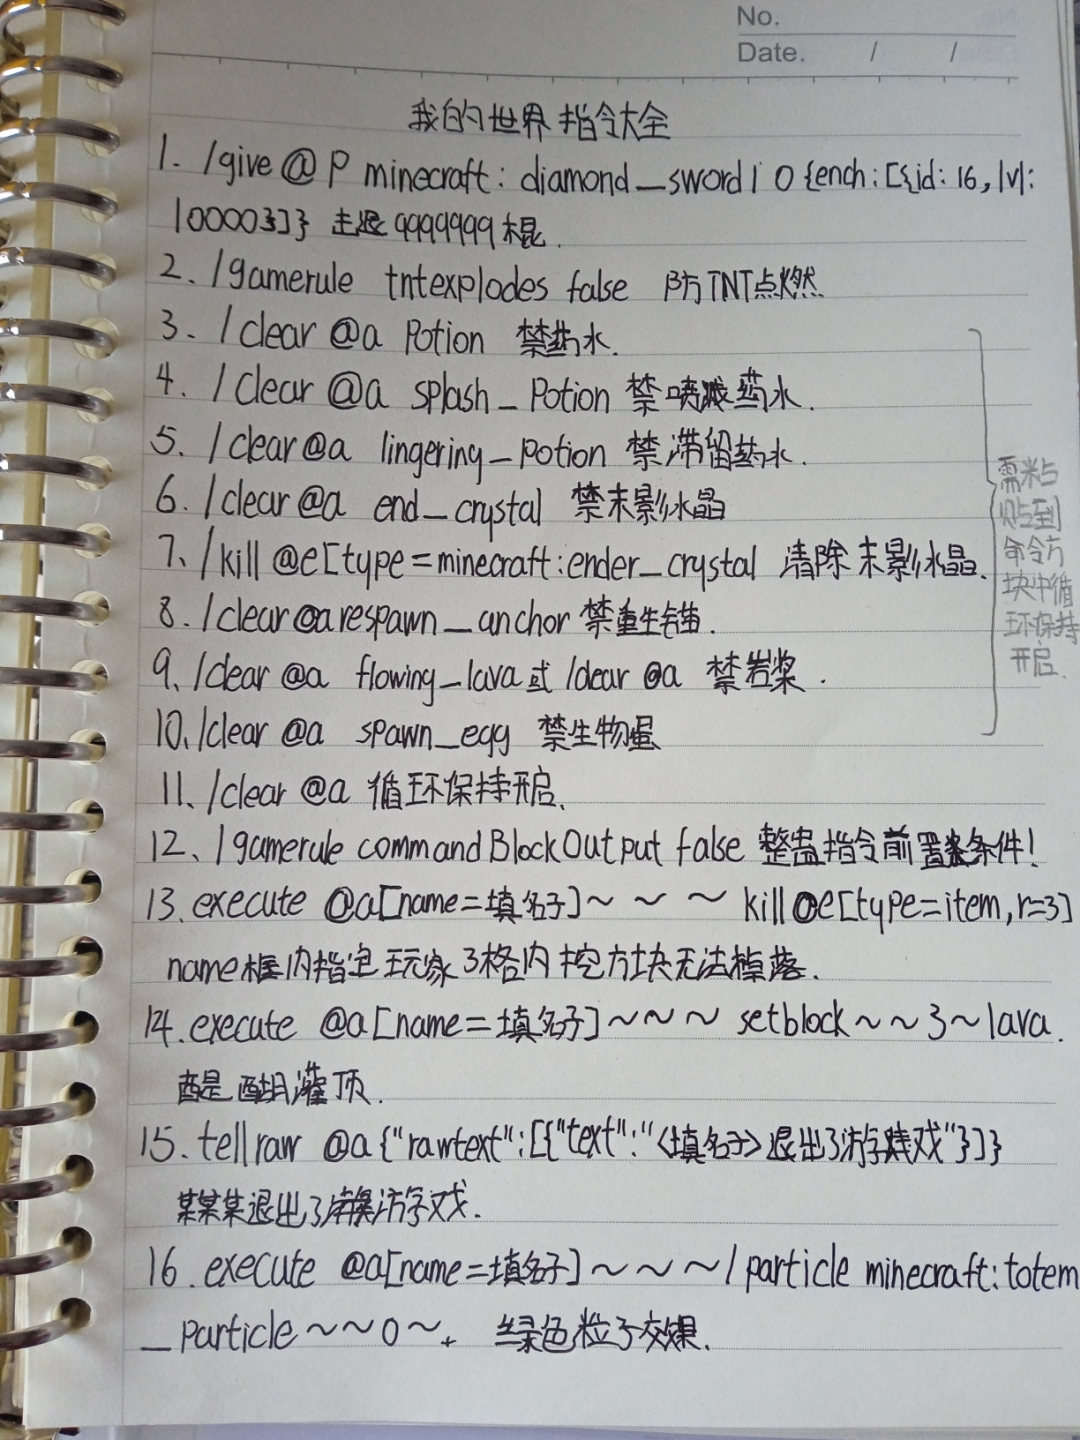 No.
Date. / /
我的世界指令大全
1. /give @p minecraft: diamond_sword 1 0 {ench:[{id:16,lvl:
10000}]} 击退9999999棍.
2. /gamerule tntexplodes false 防TNT点燃
3. /clear @a Potion 禁药水.
4. /clear @a splash_Potion 禁喷溅药水.
5. /clear@a lingering_potion 禁滞留药水.
6. /clear@a end_crystal 禁末影水晶
7、/kill @e[type=minecraft:ender_crystal 清除末影水晶.
8. /clear@a respawn_anchor 禁重生锚.
9、/clear @a flowing_lava或/clear @a 禁岩浆.
10、/clear @a spawn_egg 禁生物蛋
需粘
贴到
命令方
块中循
环保持
开启.
11、/clear @a 循环保持开启.
12、/gamerule commandBlockOutput false 整蛊指令前置条件!
13. execute @a[name=填名子]~ ~ ~ kill @e[type=item,r=3]
name框内指定玩家3格内挖方块无法掉落.
14. execute @a[name=填名子]~~~ setblock~~3~lava.
醍醐灌顶.
15. tellraw @a{"rawtext":[{"text":"<填名子>退出了游戏"}]}
某某某退出了游戏.
16. execute @a[name=填名子]~~~/particle minecraft:totem
_particle~~0~. 绿色粒子效果.